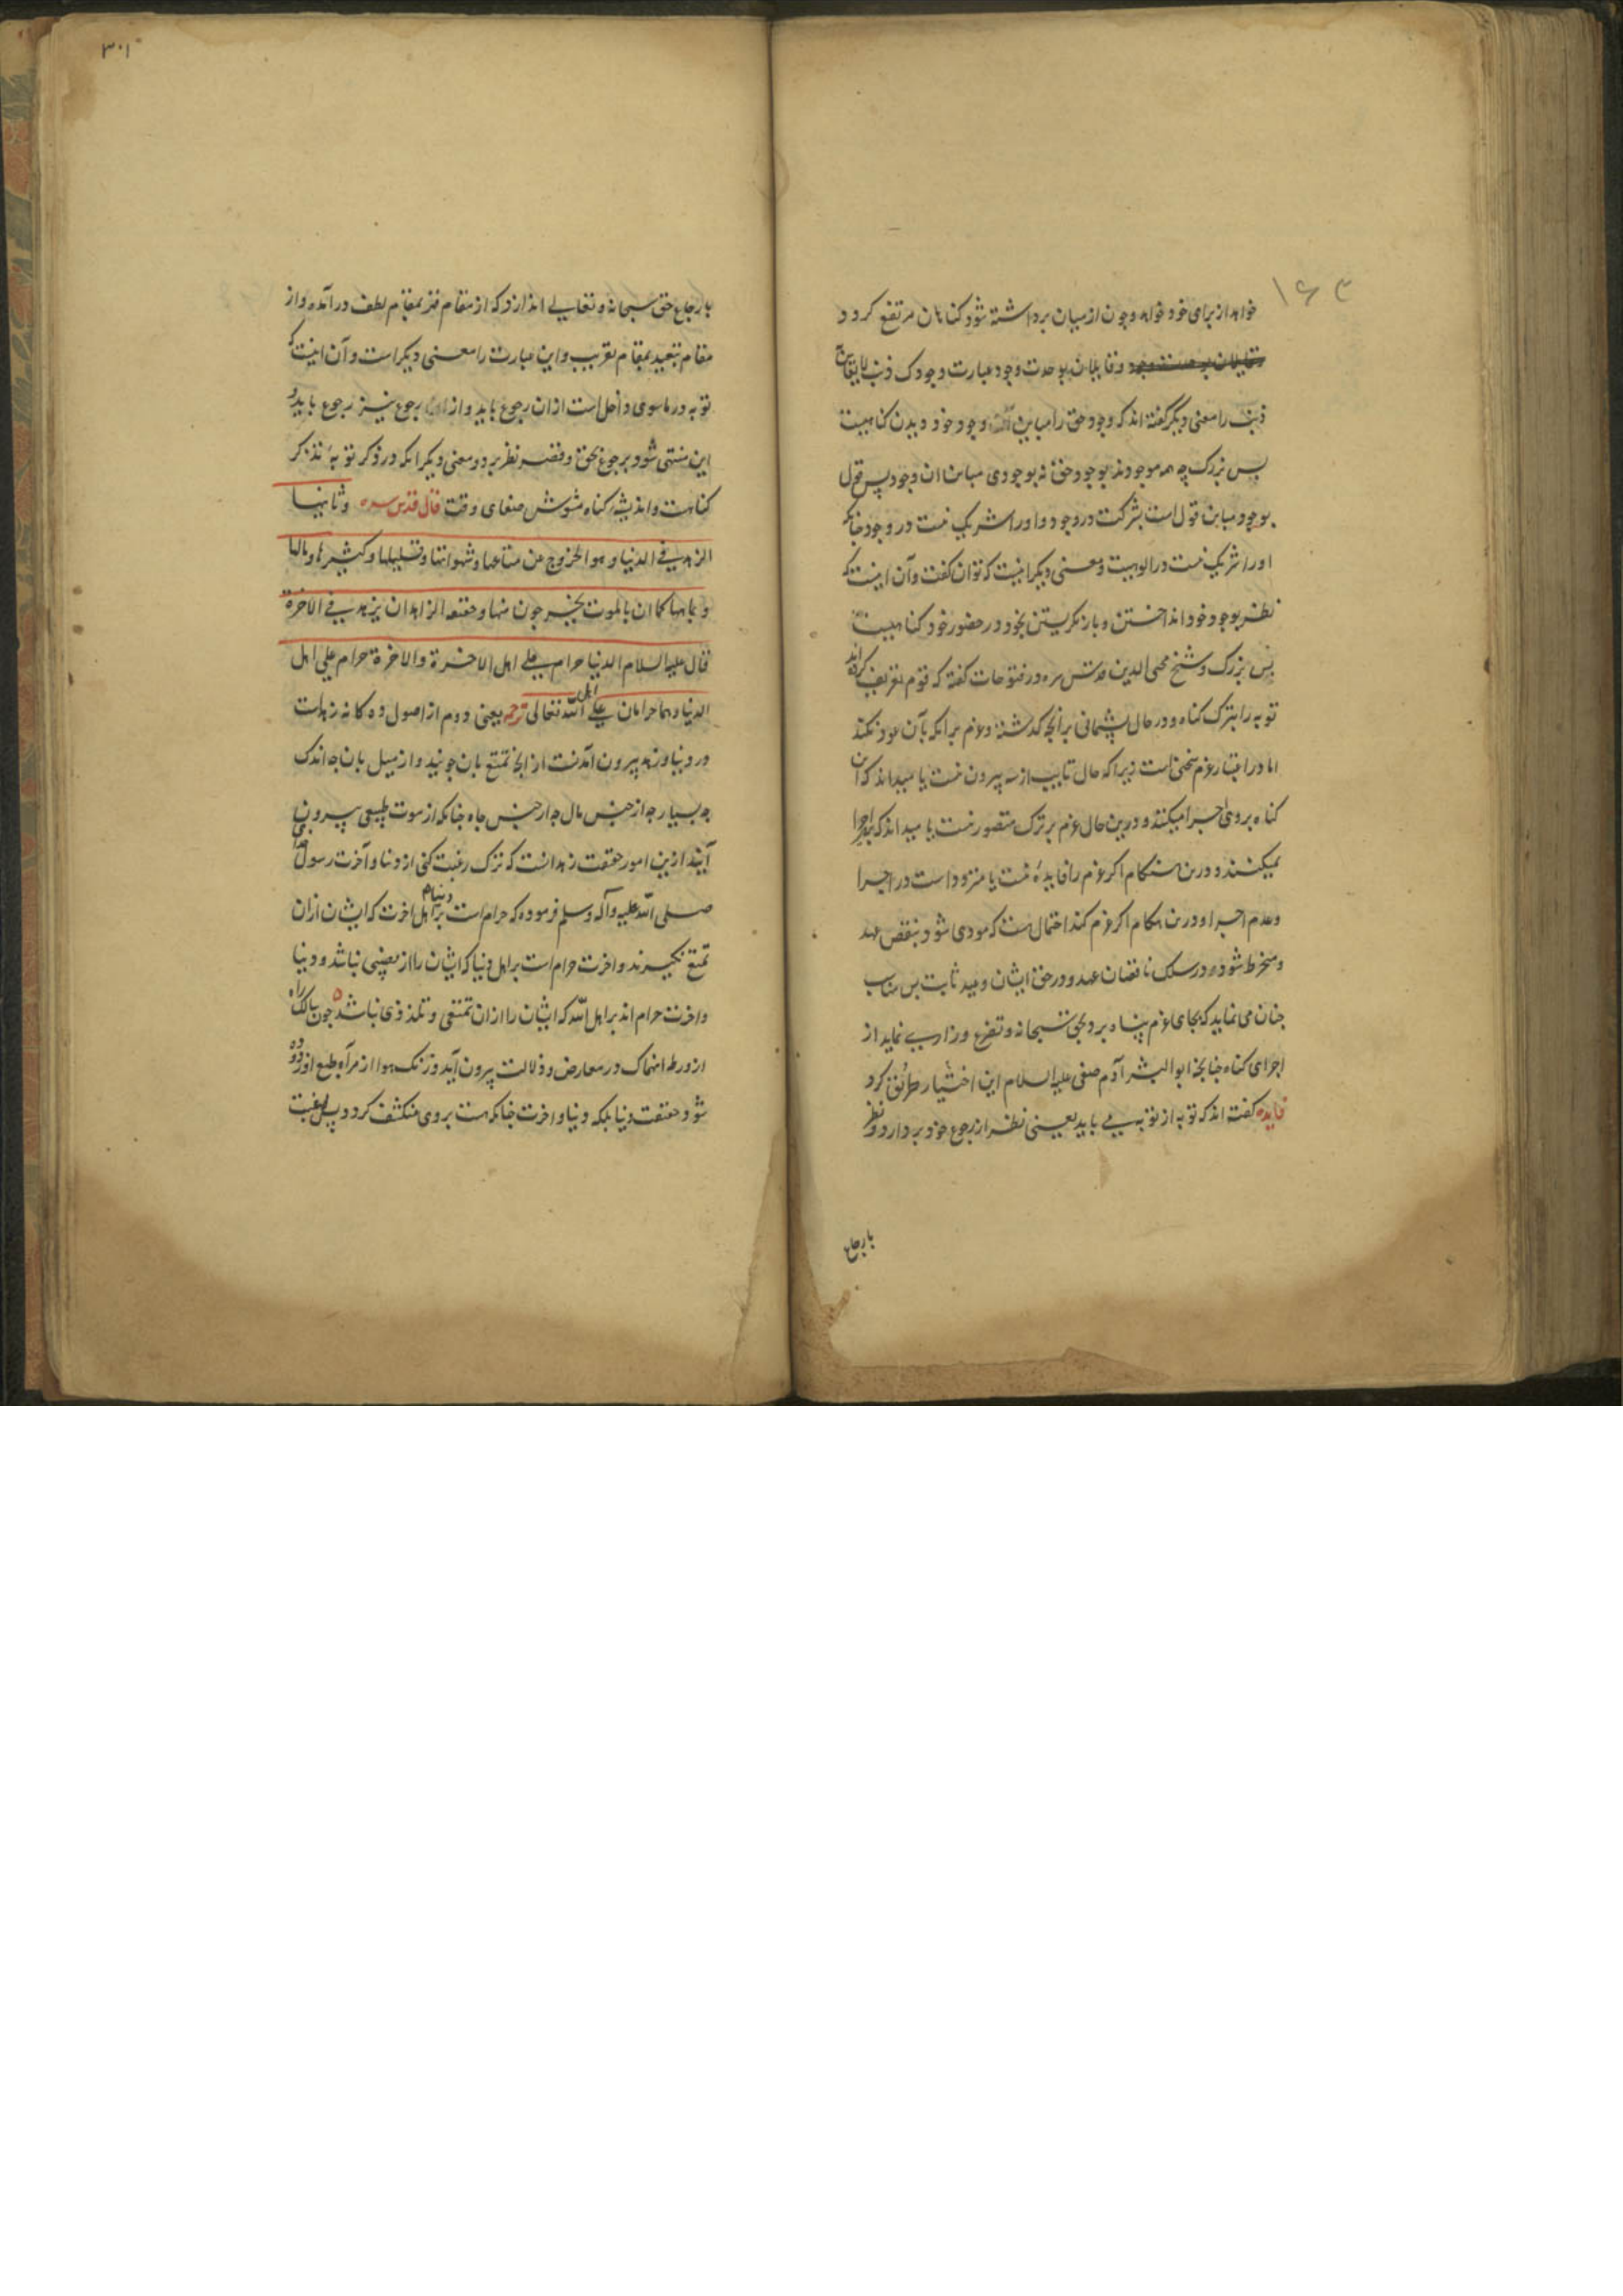 ۱۶۳
خواهد از برای خود خواهد و چون از میان برداشته شود کناهان مرتفع کردد و
وقایلان بوحدت وجود عبارت وجودک ذنب لا یقاس به
ذنب را معنی دیکر کفته اند که وجود حق را مباین وجود خود دیدن کناهیست
بس بزرک چه همه موجودند بوجود حق نه بوجودی مباین ان وجود پس قول
بوجود مباین قول است بشرکت در وجود و او را شریک نیست در وجود چنانکه
او را شریک نیست در الوهیت و معنی دیکر اینست که توان کفت و آن اینست که
نظر بوجود خود انداختن و باز نکریستن بخود در حضور خود کناهیست
بس بزرک و شیخ محیی الدین قدس سره در فتوحات کفته که قوم تعریف کرده اند
توبه را بترک کناه در حال و پشیمانی بر آنچه کذشته و عزم بر انکه بآن عود نکند
اما در اعتبار عزم سخنی است زیرا که حال تایب از سه بیرون نیست یا میداند که آن
کناه بر وی اجرا میکنند و درین حال عزم بر ترک متصور نیست یا میداند که اجرا
نمیکنند و درین هنکام اکر عزم را فایدهٔ نیست یا متردد است در اجرا
و عدم اجرا و درین هنکام اکر عزم کند احتمال هست که مودی شود بنقض عهد
و منخرط شود در سلک ناقضان عهد و در حق ایشان وعید ثابت بس مناسب
چنان می نماید که بجای عزم پناه برد بحق سبحانه و تضرع و زاری نماید از
اجرای کناه چنانچه ابو البشر آدم صفی علیه السلام این اختیار طرایق کرد
فایده کفته اند که توبه از توبه می باید یعنی نظر از رجوع خود بردارد و نظر
بارجاع
۳۰۱
بارجاع حق سبحانه و تعالی اندازد که از مقام قهر بمقام لطف در آمده و از
مقام تبعید بمقام تقریب و این عبارت را معنی دیکر است و آن اینست که
توبه در ماسوی داخل است از ان رجوع باید و از رجوع نیز رجوع باید و
این منتهی شود برجوع بحق و قصر نظر برو و معنی دیکر انکه در ذکر توبه تذکر
کناهست و اندیشهٔ کناه مشوش صفای وقت قال قدس سره و ثانیها
الزهد فی الدنیا و هو الخروج عن متاعها و شهواتها و قلیلها و کثیرها و مالها
و جاهها کما ان بالموت یخرجون منها و حقیقه الزاهد ان یزهد فی الاخرة
قال علیه السلام الدنیا حرام علی اهل الاخرة والاخرة حرام علی اهل
الدنیا و هما حرامان علی اهل الله تعالی ترجمه یعنی دوم از اصول ده کانه زهدست
در دنیا و زهد بیرون آمدنست از انچه تمتع بان جویند و از میل بان چه اندک
چه بسیار چه از جنس مال چه از جنس جاه چنانکه از موت طبیعی بیرون می
آیند ازین امور حقیقت زهد انست که ترک رغبت کنی از دنیا و آخرت رسول خدا
صلی الله علیه و آله وسلم فرموده که حرام است دنیا بر اهل اخرت که ایشان ازان
تمتع نکیرند و اخرت حرام است بر اهل دنیا که ایشان را از نصیبی نباشد و دنیا
و اخرت حرام اند بر اهل الله که ایشان را ازان تمتعی و تلذذی نباشد چون سالک راه
از ورطه انهماک در معارض و ذلالت بیرون آید و زنک هوا از مرآه طبع او زدوده
شود حقیقت دنیا بلکه دنیا و اخرت چنانکه هست بر وی منکشف کردد پس رغبت